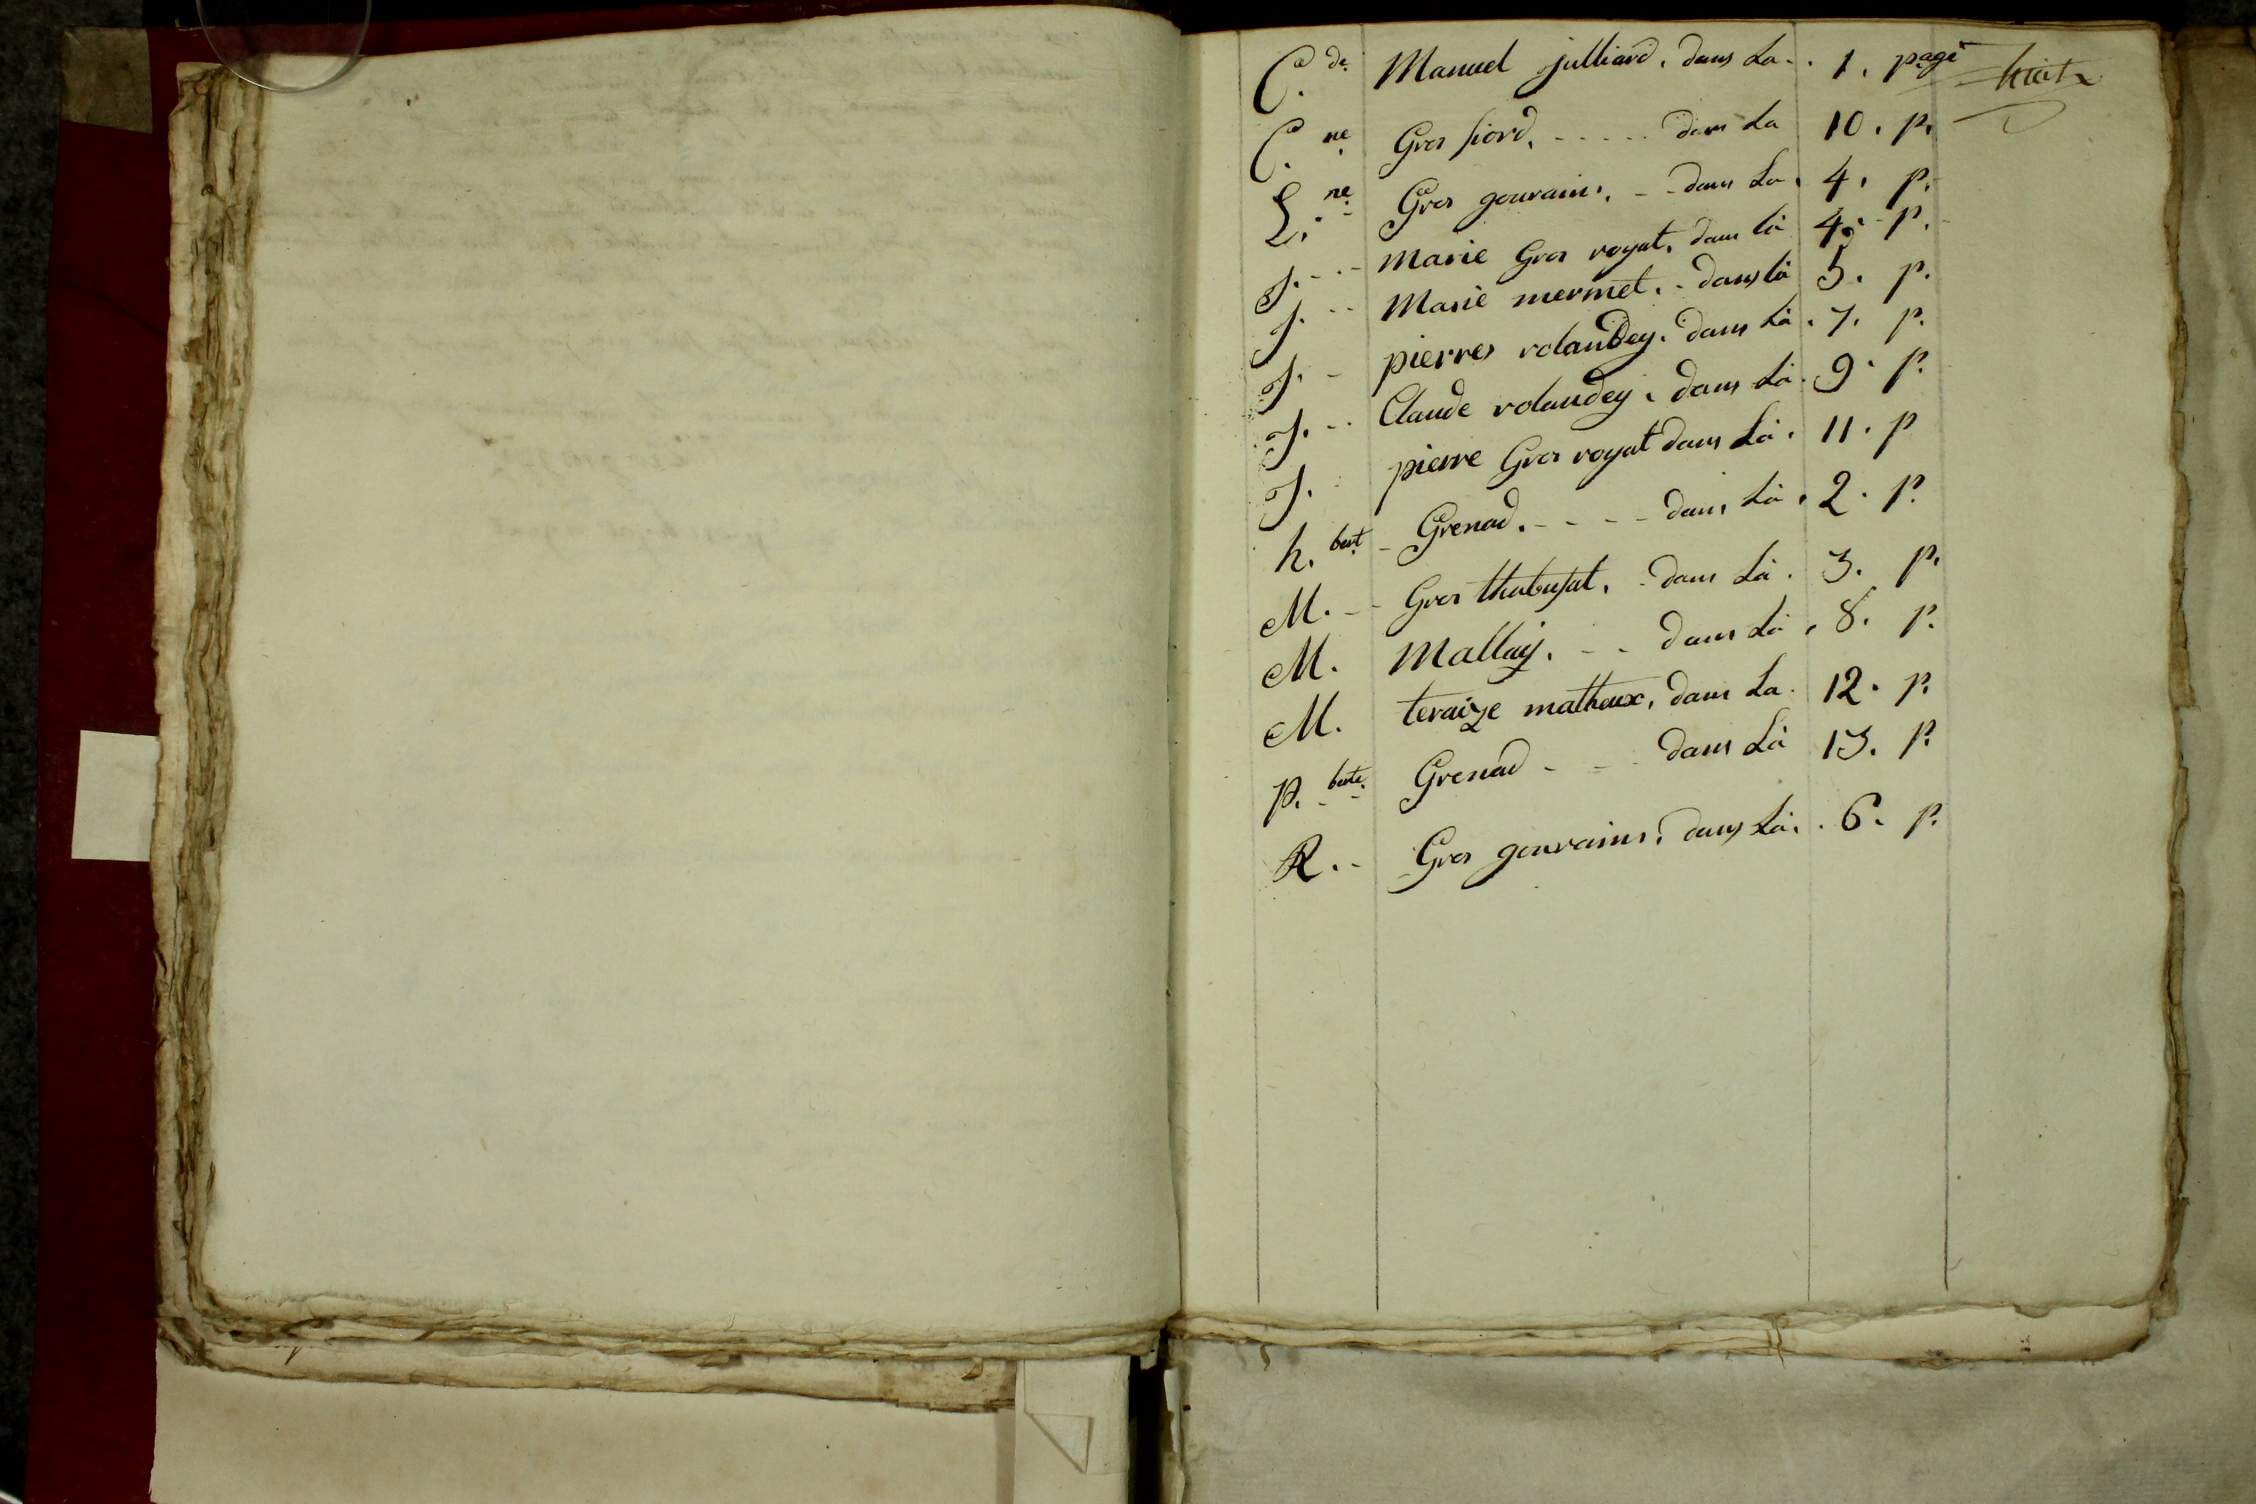 C. de. Manuel julliard. dans La. 1. page
C. ne. Gros fiord. dans La 10. p.
L. ne. Gros gourain. dans La. 4. p.
J. Marie Gros royat. dans là 4. p.
J. Marie mermet. dans là 5. p.
J. pierres rolandey. dans Là. 7. p.
J. Claude rolandey. dans Là. 9. p.
J. pierre Gros royat dans Là. 11. p
h. bert Grenad. dans Là. 2. p.
M. Gros dans Là. 3. p.
M. Mallay. dans Là. 8. p.
M. teraize matheux, dans La. 12. p.
p. bate. Grenad dans Là 13. p.
R. Gros gourains. dans Là. 6. p.